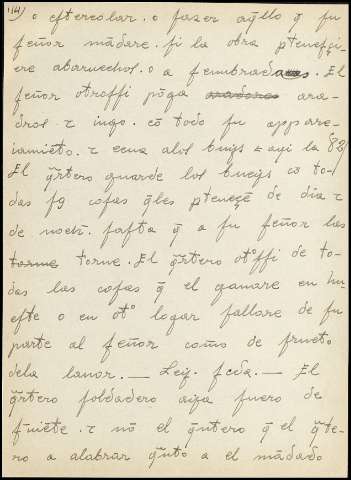 (14)
o eftercolar. o fazer aq̃llo q̃ fu
feñor mãdare. fi la obra ptenefçi-
ere abaruechol. o a fembrada. El
feñor otroffi põga ara-
drol τ iugo. cõ todo fu appare-
iamiẽto. τ ceua alol bueyf
El q̃rtero guarde lol bueyf cõ to-
daf fuf cofaf q̃lef ptenez̃e de dia τ
de noch̃. fafta q̃ a fu feñor las
torne torne. El q̃rtero otoffi de to-
das las cofas q̃ el ganare en hu-
efte o en oto logar fallare de fu
parte al feñor como de fructo
dela lauor. — Ley. fcda. — El
q̃rtero foldadero aya fuero de
fuiẽte. τ nõ el q̃ntero q̃ el q̃rte-
ro a alabrar q̃nto a el mãdado